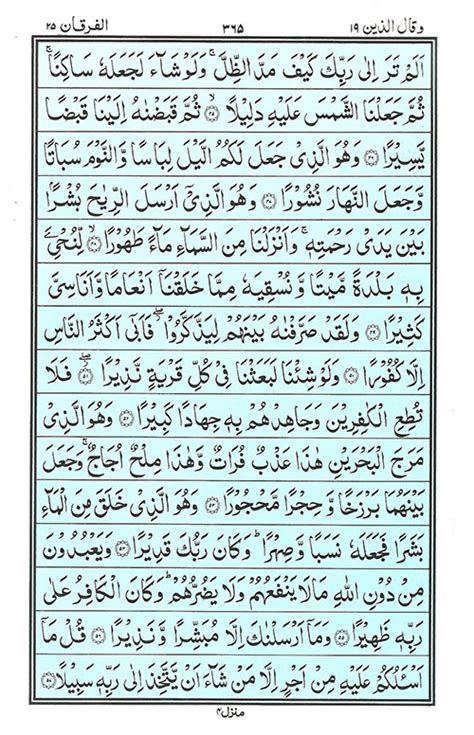 وقال الذين ١٩ ٣٦٥ الفرقان ٢٥
اَلَمْ تَرَ اِلٰى رَبِّكَ كَيْفَ مَدَّ الظِّلَّ ۚ وَلَوْ شَآءَ لَجَعَلَهٗ سَاكِنًا ۚ
ثُمَّ جَعَلْنَا الشَّمْسَ عَلَيْهِ دَلِيْلًا ۙ۝٤٥ ثُمَّ قَبَضْنٰهُ اِلَيْنَا قَبْضًا
يَّسِيْرًا ۝٤٦ وَهُوَ الَّذِيْ جَعَلَ لَكُمُ الَّيْلَ لِبَاسًا وَّالنَّوْمَ سُبَاتًا
وَّجَعَلَ النَّهَارَ نُشُوْرًا ۝٤٧ وَهُوَ الَّذِيْٓ اَرْسَلَ الرِّيٰحَ بُشْرًۢا
بَيْنَ يَدَيْ رَحْمَتِهٖ ۚ وَاَنْزَلْنَا مِنَ السَّمَآءِ مَآءً طَهُوْرًا ۙ۝٤٨ لِّنُحْيِۦَ
بِهٖ بَلْدَةً مَّيْتًا وَّنُسْقِيَهٗ مِمَّا خَلَقْنَآ اَنْعَامًا وَّاَنَاسِيَّ
كَثِيْرًا ۝٤٩ وَلَقَدْ صَرَّفْنٰهُ بَيْنَهُمْ لِيَذَّكَّرُوْا ۖ فَاَبٰٓى اَكْثَرُ النَّاسِ
اِلَّا كُفُوْرًا ۝٥٠ وَلَوْ شِئْنَا لَبَعَثْنَا فِيْ كُلِّ قَرْيَةٍ نَّذِيْرًا ۖ۝٥١ فَلَا
تُطِعِ الْكٰفِرِيْنَ وَجَاهِدْهُمْ بِهٖ جِهَادًا كَبِيْرًا ۝٥٢ وَهُوَ الَّذِيْ
مَرَجَ الْبَحْرَيْنِ هٰذَا عَذْبٌ فُرَاتٌ وَّهٰذَا مِلْحٌ اُجَاجٌ ۚ وَجَعَلَ
بَيْنَهُمَا بَرْزَخًا وَّحِجْرًا مَّحْجُوْرًا ۝٥٣ وَهُوَ الَّذِيْ خَلَقَ مِنَ الْمَآءِ
بَشَرًا فَجَعَلَهٗ نَسَبًا وَّصِهْرًا ؕ وَكَانَ رَبُّكَ قَدِيْرًا ۝٥٤ وَيَعْبُدُوْنَ
مِنْ دُوْنِ اللّٰهِ مَا لَا يَنْفَعُهُمْ وَلَا يَضُرُّهُمْ ؕ وَكَانَ الْكَافِرُ عَلٰى
رَبِّهٖ ظَهِيْرًا ۝٥٥ وَمَآ اَرْسَلْنٰكَ اِلَّا مُبَشِّرًا وَّنَذِيْرًا ۝٥٦ قُلْ مَآ
اَسْـَٔلُكُمْ عَلَيْهِ مِنْ اَجْرٍ اِلَّا مَنْ شَآءَ اَنْ يَّتَّخِذَ اِلٰى رَبِّهٖ سَبِيْلًا ۝٥٧
منزل ٤